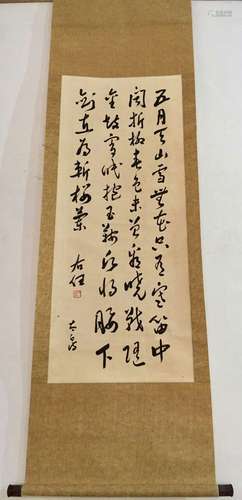 五月天山雪無花只有寒笛中
聞折柳春色未曾看曉戰隨
金鼓宵眠抱玉鞍願將腰下
劍直為斬樓蘭 右任
太平